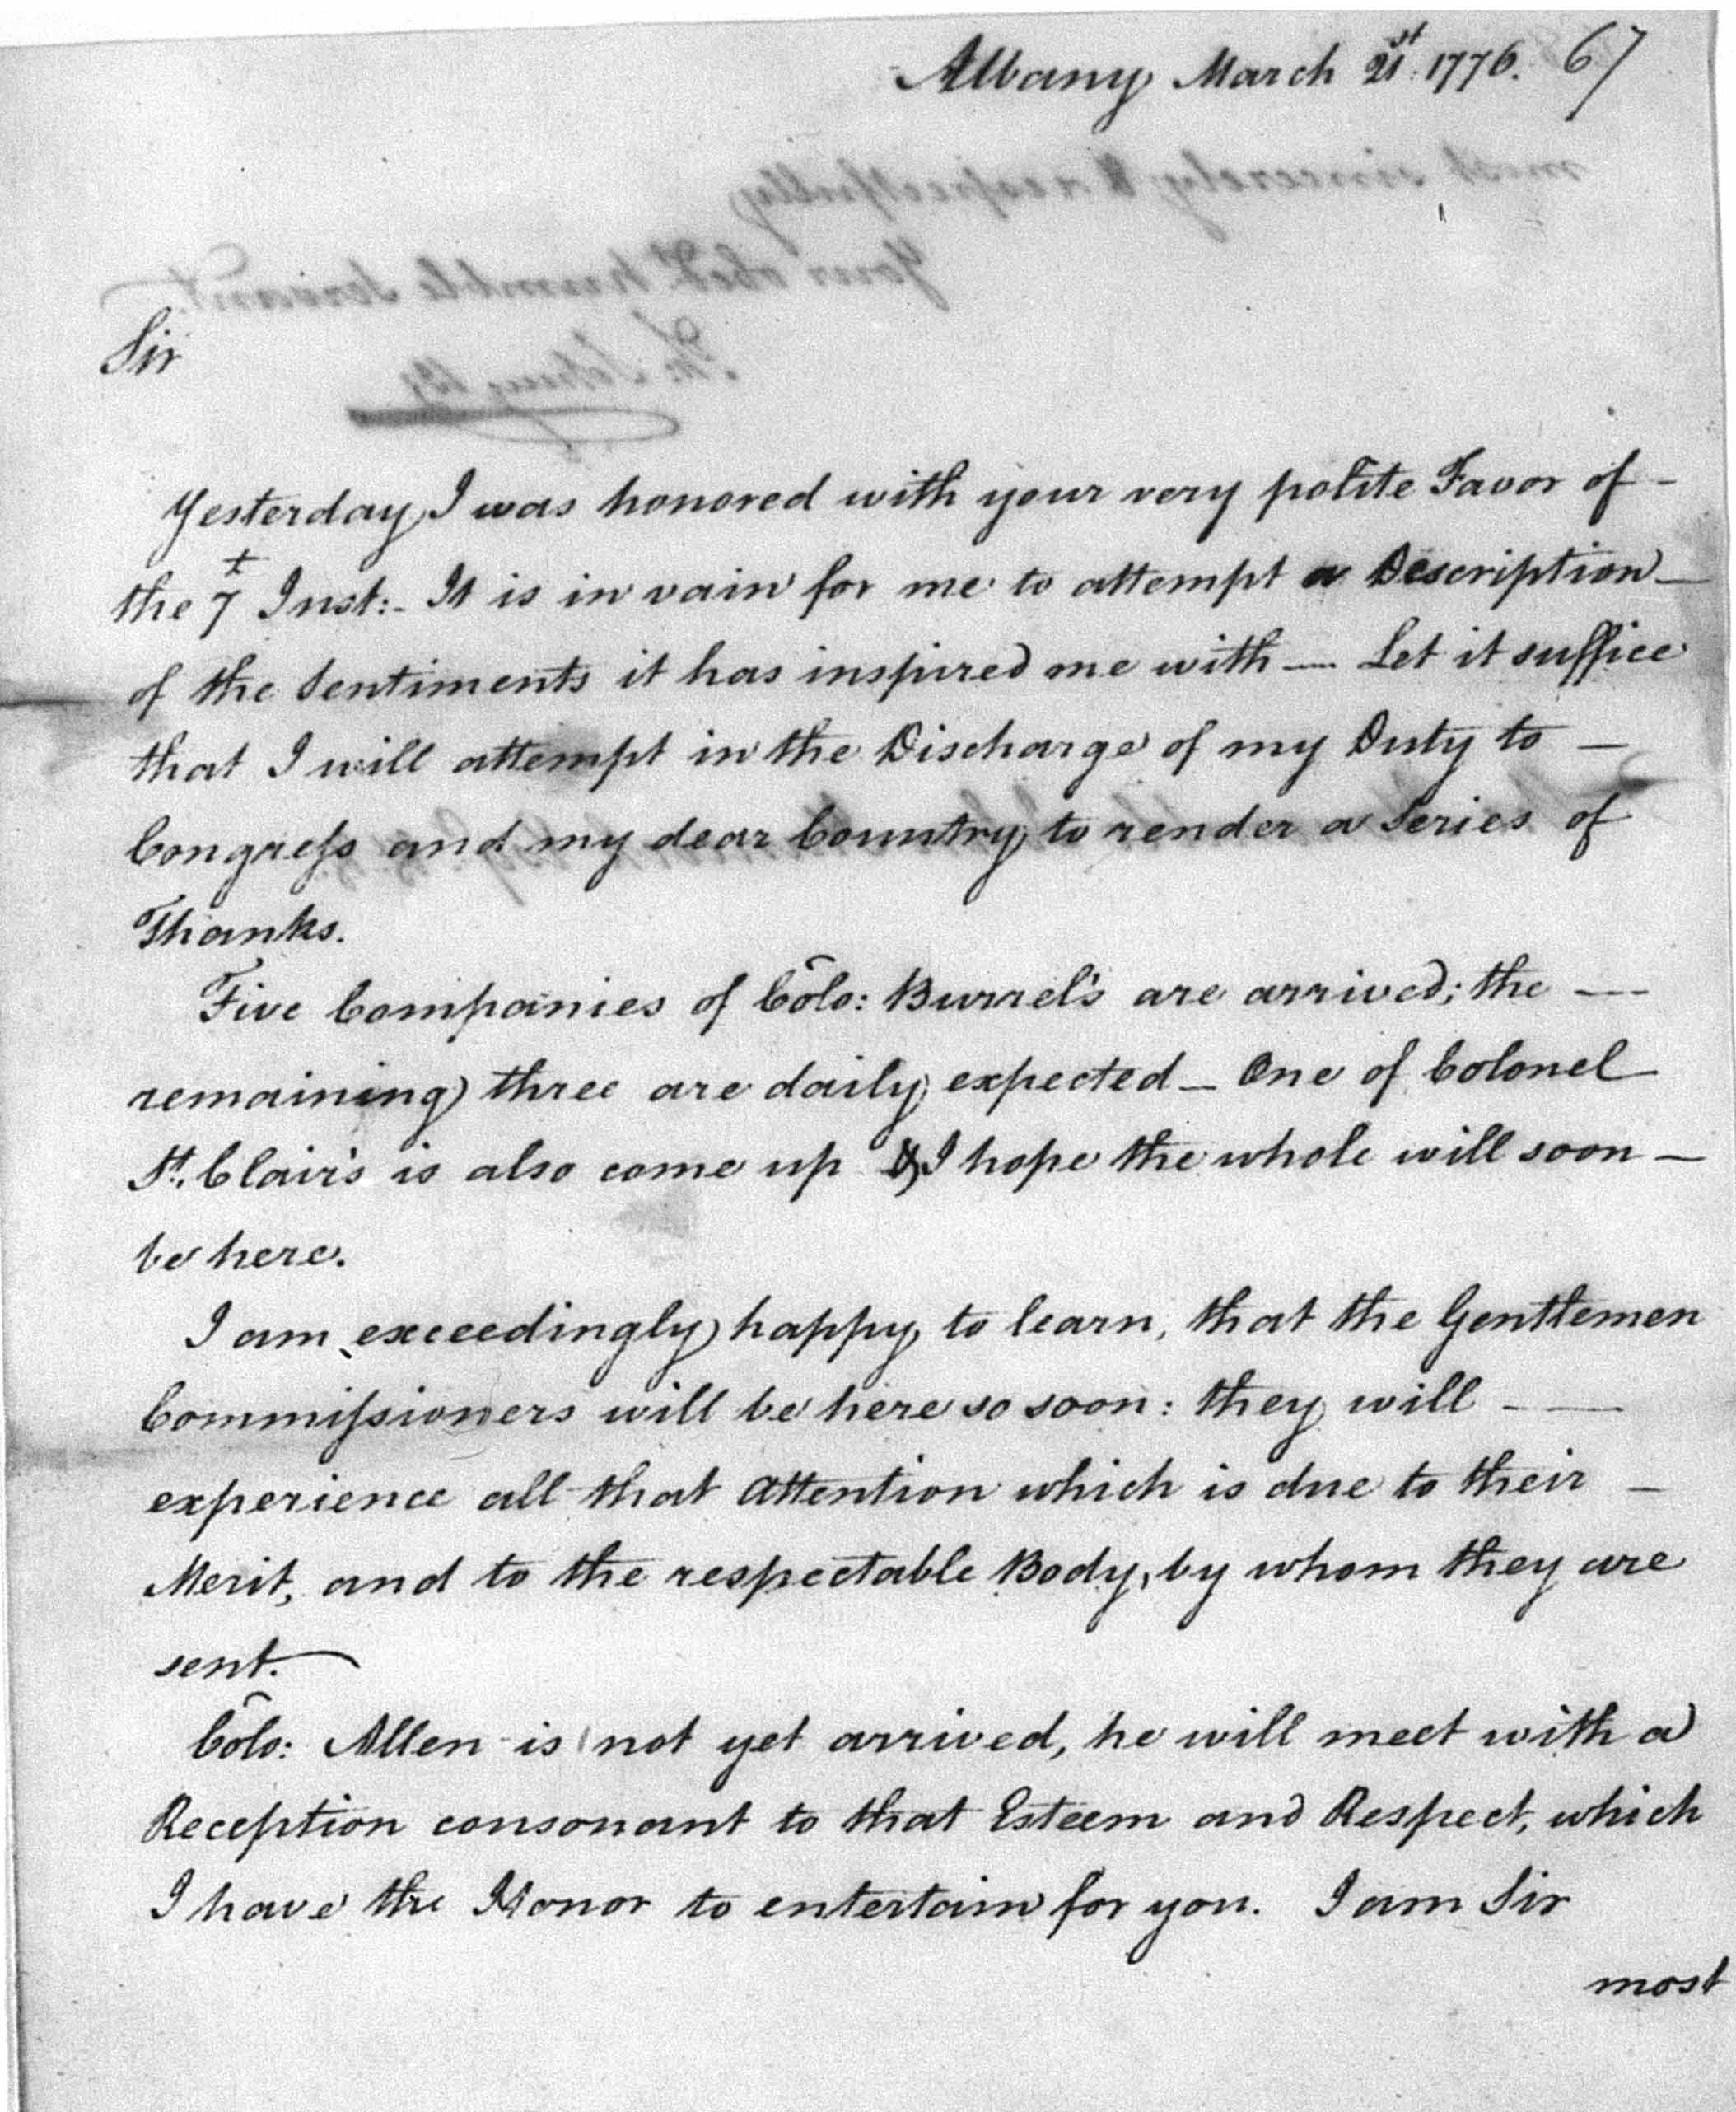 Albany March 21st. 1776. 67
Sir
Yesterday I was honored with your very polite Favor of -
the 7t Inst:- It is in vain for me to attempt a Description -
of the Sentiments it has inspired me with — Let it suffice
that I will attempt in the Discharge of my Duty to —
Congreſs and my dear Country, to render a Series of
Thanks.
Five Companies of Colo: Burrel's are arrived; the —
remaining three are daily expected — One of Colonel
St. Clair's is also come up & I hope the whole will soon —
be here.
I am exceedingly happy to learn, that the Gentlemen
Commiſsioners will be here so soon: they will — —
experience all that Attention which is due to their —
Merit, and to the respectable Body, by whom they are
sent. —
Colo: Allen is not yet arrived, he will meet with a
Reception consonant to that Esteem and Respect, which
I have the Honor to entertain for you. I am Sir
most